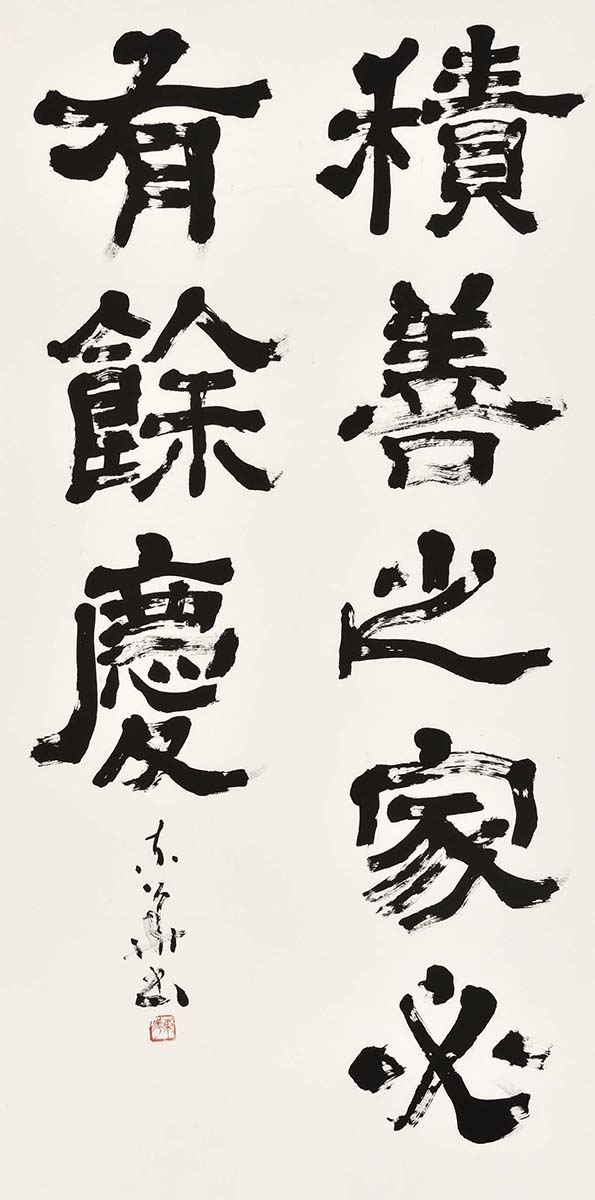 積善之家必
有餘慶